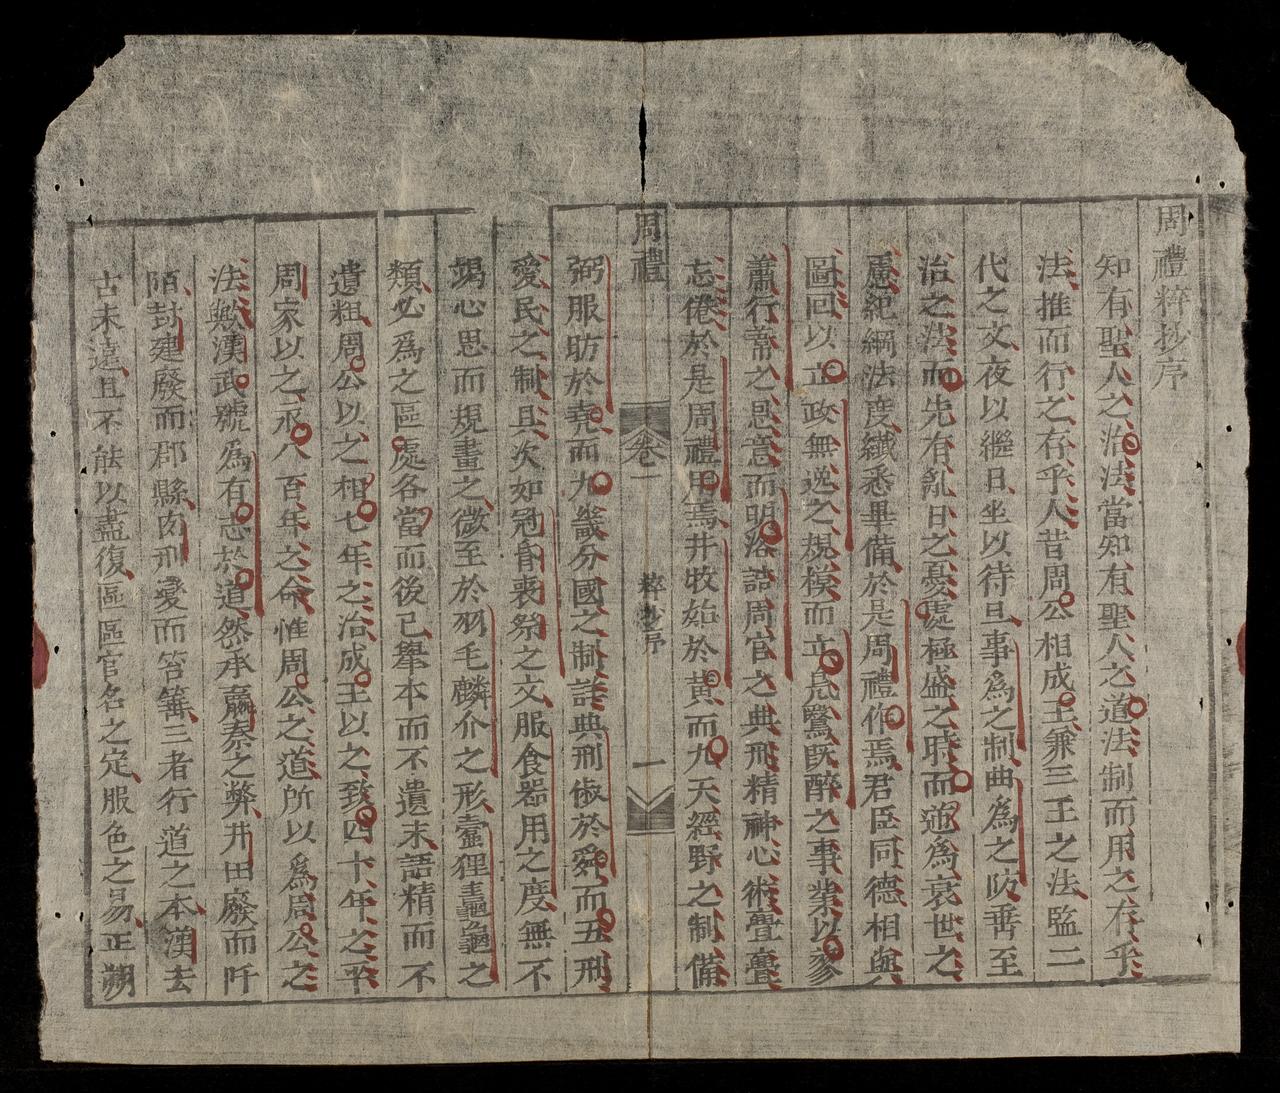 周禮粹抄序
知有聖人之治法當知有聖人之道法制而用之存乎
法推而行之存乎人昔周公相成王兼三王之法監二
代之文夜以繼日坐以待旦事為之制曲為之防畨至
治之法而先有亂日之憂處極盛之時而逆為衰世之
慮紀綱法度纖悉畢備於是周禮作焉君臣同德相與
圖回以立政無逸之規模而立鳧鷖既醉之事業以豢
蕭行葦之恩意而明洛誥周官之典刑精神心術亹亹
忘倦於是周禮用焉井牧始於黄而九天經野之制備
周禮
卷一
粹抄序
一
弼服昉於堯而九畿分國之制詳典刑倣於舜而五刑
愛民之制具次如冠昏喪祭之文服食器用之度無不
竭心思而規畫之微至於羽毛麟介之形壼狸蠧龜之
類必為之區處各當而後已舉本而不遺末語精而不
遺粗周公以之相七年之治成王以之致四十年之平
周家以之永八百年之命惟周公之道所以為周公之
法歟漢武號為有志於道然承嬴秦之弊井田廢而阡
陌封建廢而郡縣肉刑變而笞箠三者行道之本漢去
古未遠且不能以盡復區區官名之定服色之易正朔